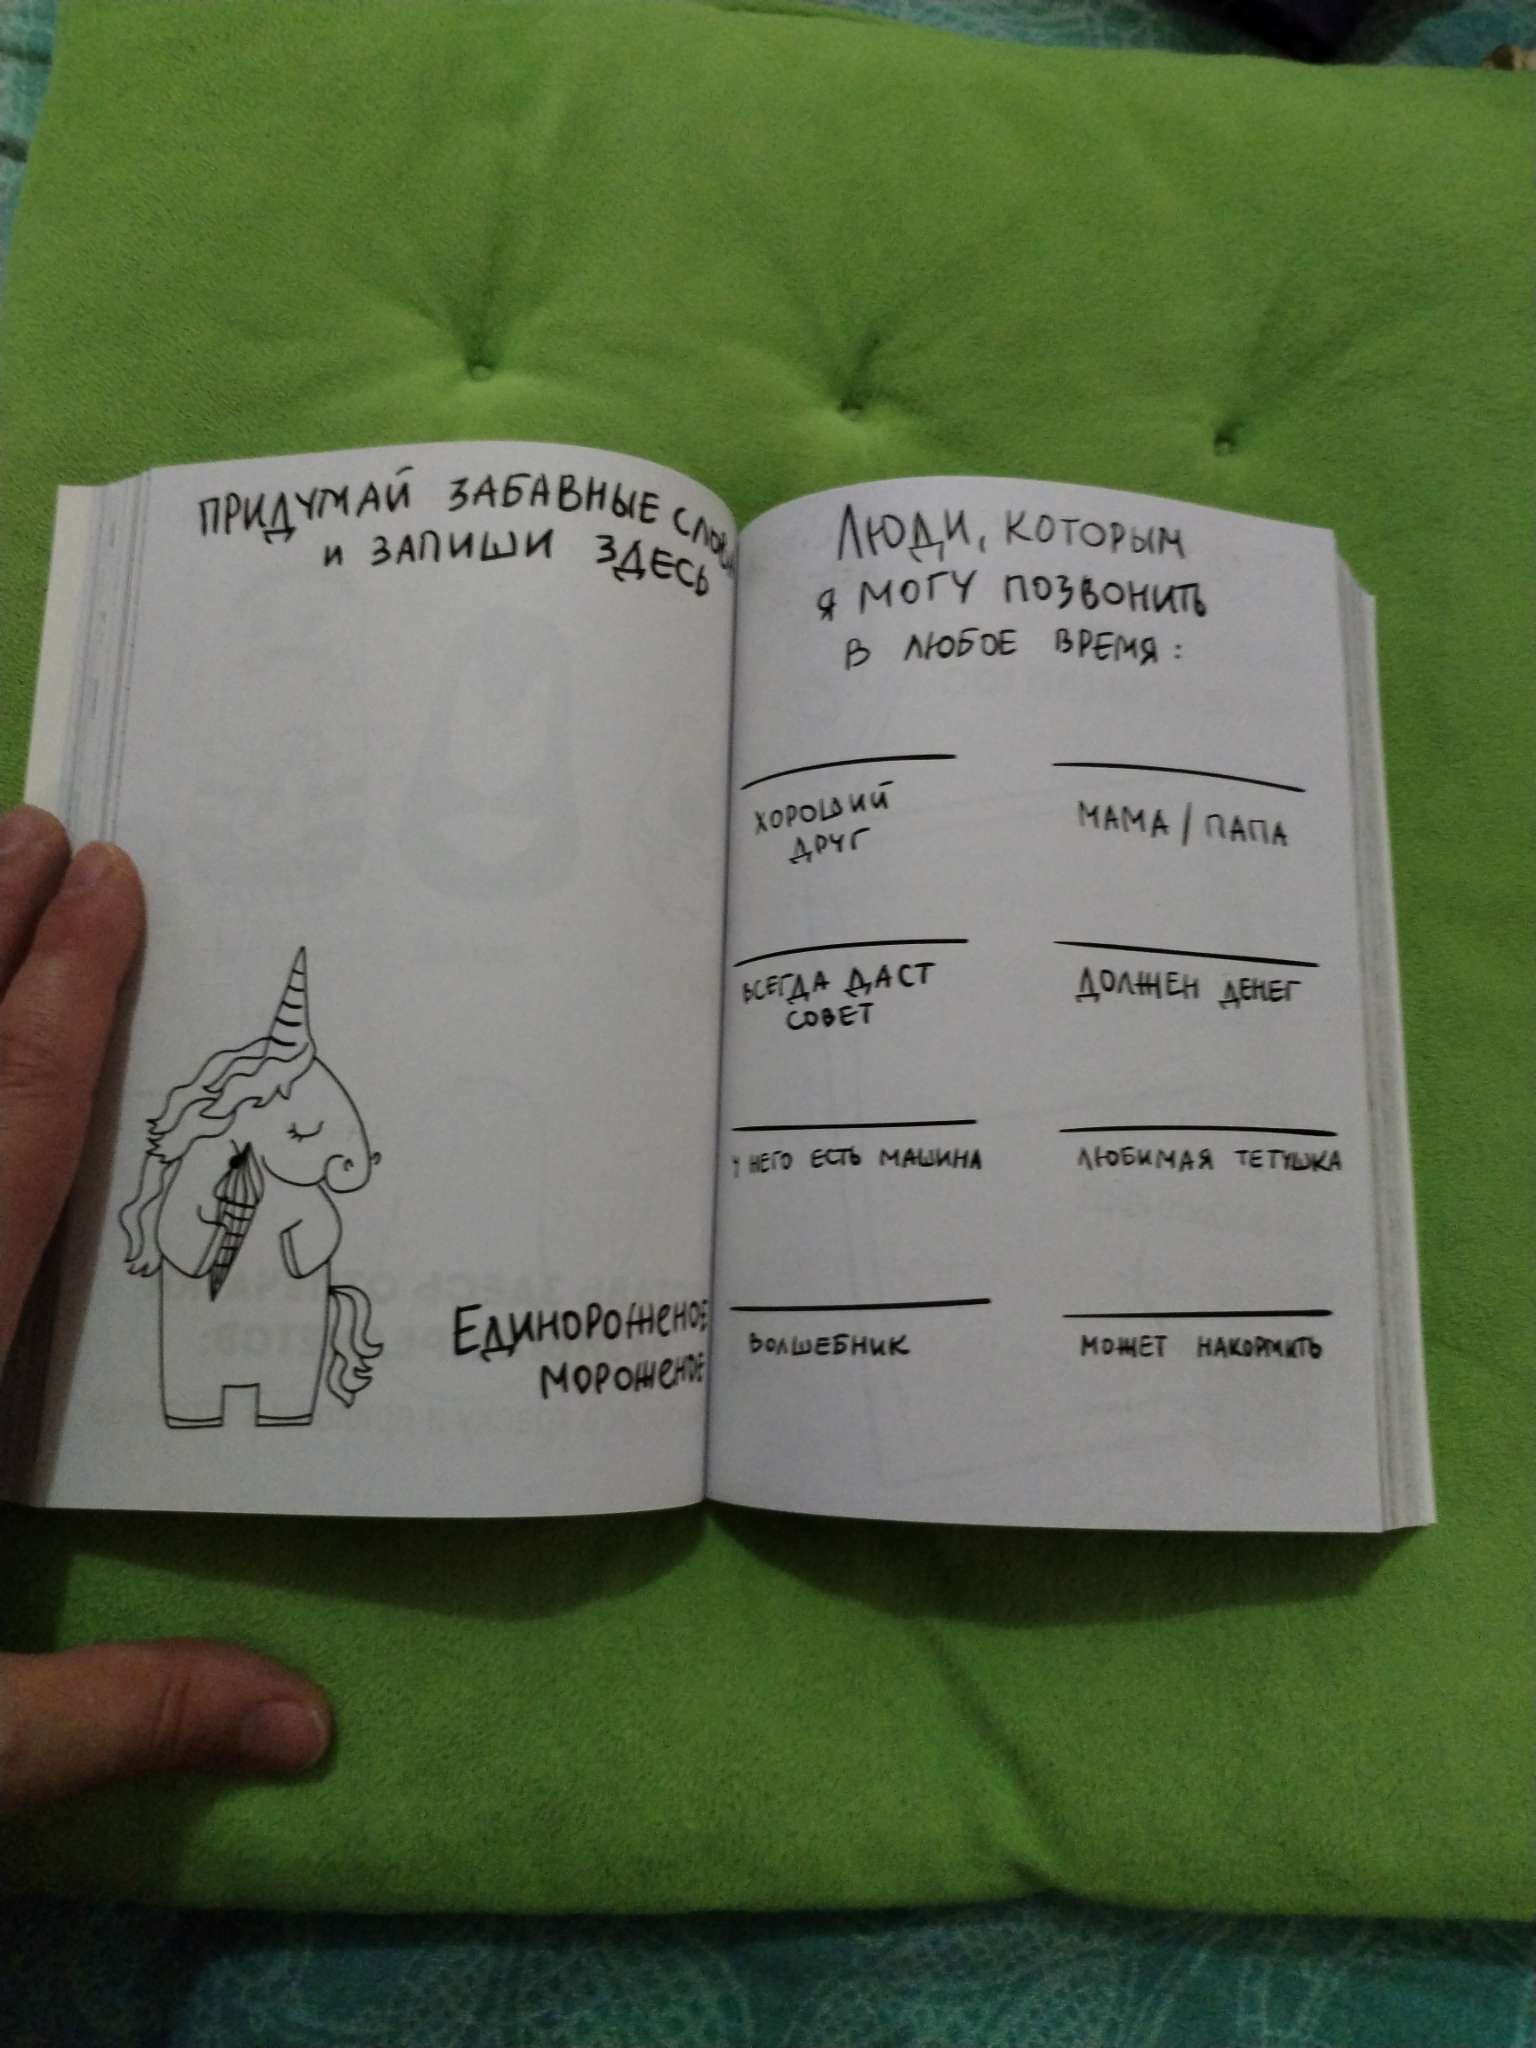 ПРИДУМАЙ ЗАБАВНЫЕ СЛОВА
И ЗАПИШИ ЗДЕСЬ
ЕДИНОРОЖЕНОЕ
МОРОЖЕНОЕ
ЛЮДИ, КОТОРЫМ
Я МОГУ ПОЗВОНИТЬ
В ЛЮБОЕ ВРЕМЯ:
ХОРОШИЙ
ДРУГ
МАМА / ПАПА
ВСЕГДА ДАСТ
СОВЕТ
ДОЛЖЕН ДЕНЕГ
У НЕГО ЕСТЬ МАШИНА
ЛЮБИМАЯ ТЕТУШКА
ВОЛШЕБНИК
МОЖЕТ НАКОРМИТЬ